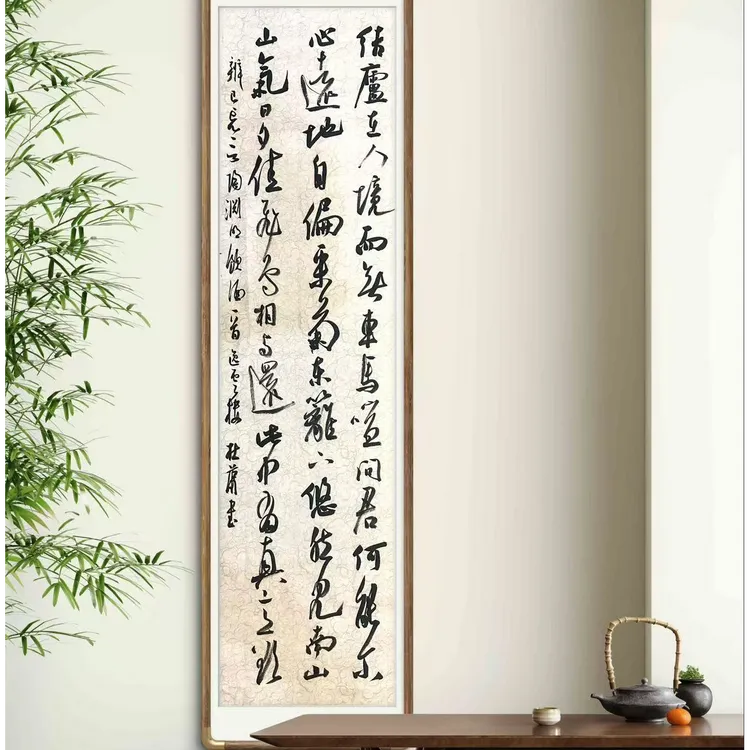 結廬在人境而無車馬喧問君何能尔
心遠地自偏采菊東籬下悠然見南山
山氣日夕佳飛鳥相与還此中有真意欲
辨已忘言陶淵明飲酒一首樓杜蕭書